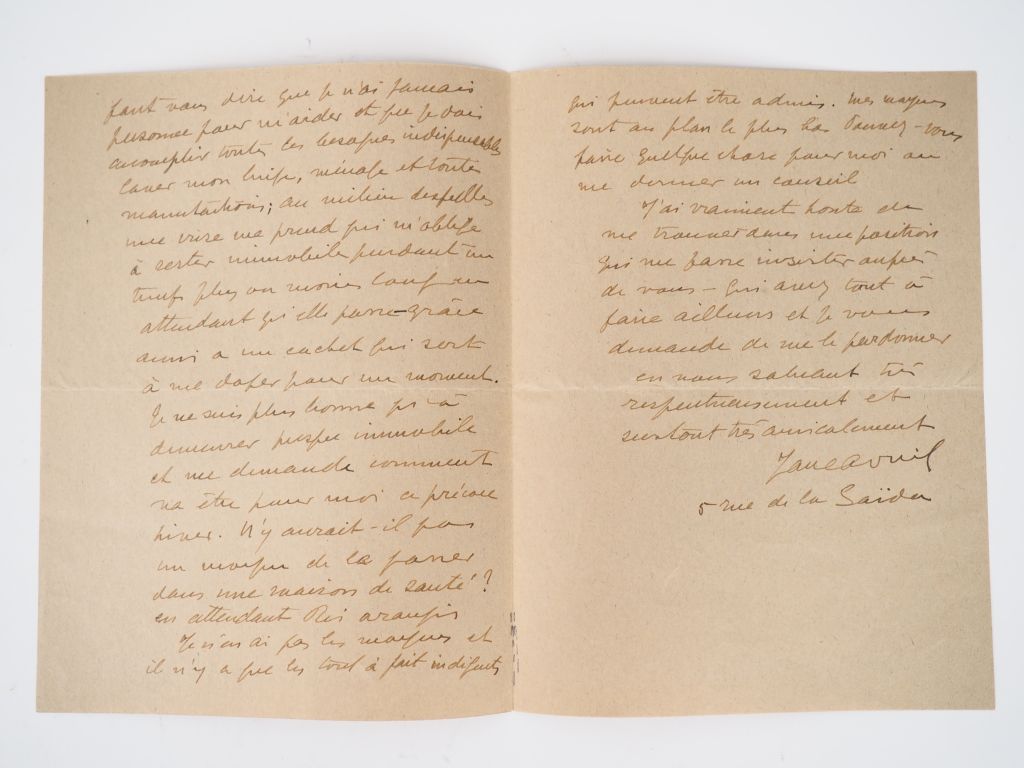 faut vous dire que je n'ai jamais
personne pour m'aider et que je dois
accomplir toutes les besognes indispensables
laver mon linge, ménage et toutes
manutentions; au milieu desquelles
une crise me prend qui m'oblige
à rester immobile pendant un
temps plus ou moins long en
attendant qu'elle passe grâce
aussi a un cachet qui sert
à me doper pour un moment.
Je ne suis plus bonne qu'à
demeurer presque immobile
et me demande comment
va être pour moi ce précoce
hiver. N'y aurait-il pas
un moyen de le passer
dans une maison de santé?
en attendant Ris orangis
Je n'en ai pas les moyens et
il n'y a que les tout à fait indigents
qui peuvent être admis. mes moyens
sont au plan le plus bas Pouvez-vous
faire quelque chose pour moi ou
me donner un conseil
J'ai vraiment honte de
me trouver dans une position
qui me fasse insister auprès
de vous - qui avez tout à
faire ailleurs et je vous
demande de me le pardonner
en vous saluant très
respectueusement et
surtout très amicalement
Jane Avril
5 rue de la Saïda